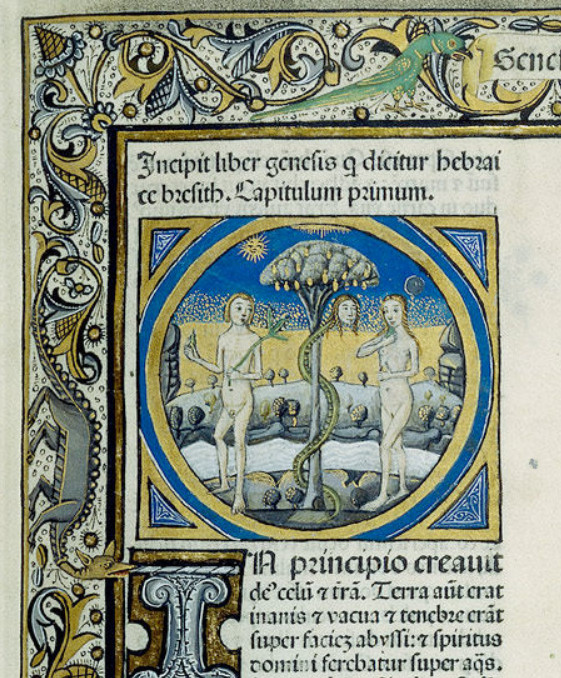 Incipit liber genesis q dicitur hebrai
ce bresith. Capitulum primum.
IN principio creauit
de⁹ celū ⁊ trā. Terra aūt erat
inanis ⁊ vacua ⁊ tenebre erāt
super faciē abyssi: ⁊ spiritus
domini ferebatur super aq̄s.